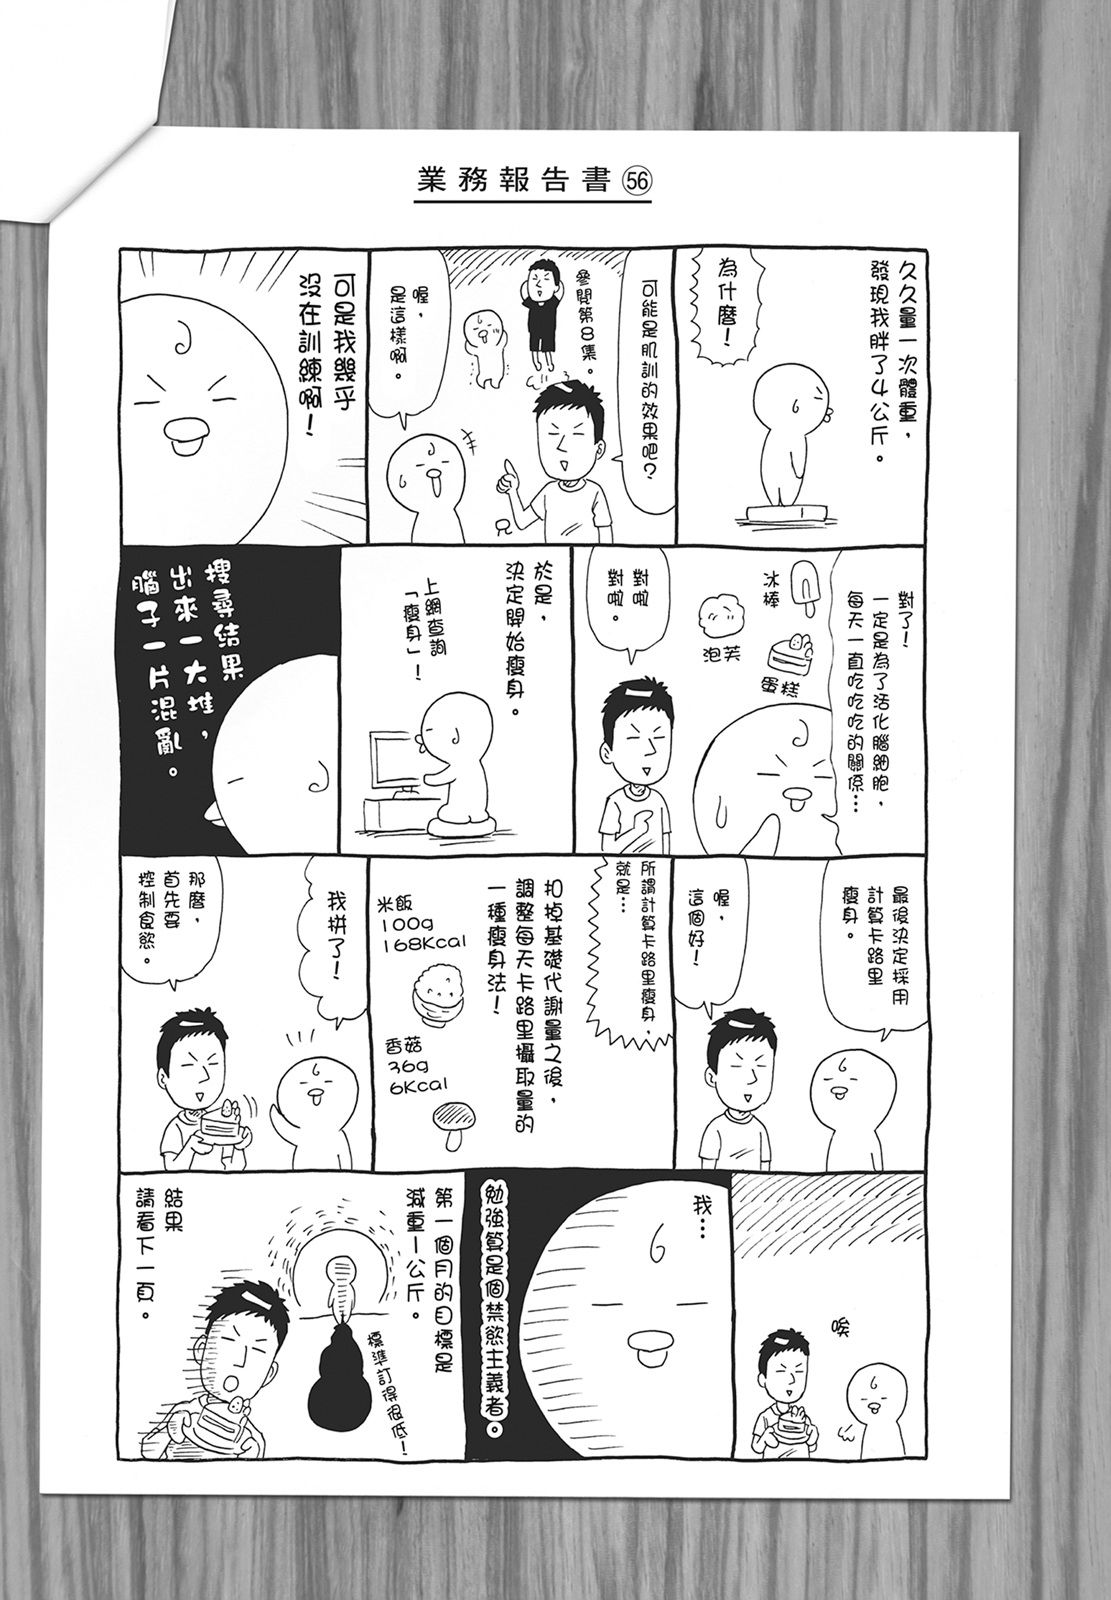 業務報告書㊻
久久量一次體重，
發現我胖了4公斤。
為什麼！
可能是肌訓的效果吧？
參閱第8集。
兄
喔，
是這樣啊。
可是我幾乎
沒在訓練啊！
對了！
一定是為了活化腦細胞，
每天一直吃吃吃的關係…
冰棒
泡芙
蛋糕
對啦
對啦。
於是，
決定開始瘦身。
上網查詢
「瘦身」！
搜尋結果
出來一大堆，
腦子一片混亂。
最後決定採用
計算卡路里
瘦身。
喔，
這個好！
所謂計算卡路里瘦身，
就是…
扣掉基礎代謝量之後，
調整每天卡路里攝取量的
一種瘦身法！
米飯
100g
168Kcal
香菇
36g
6Kcal
我拼了！
那麼，
首先要
控制食慾。
唉
我…
勉強算是個禁慾主義者。
第一個月的目標是
減重1公斤。
標準訂得很低！
結果
請看下一頁。